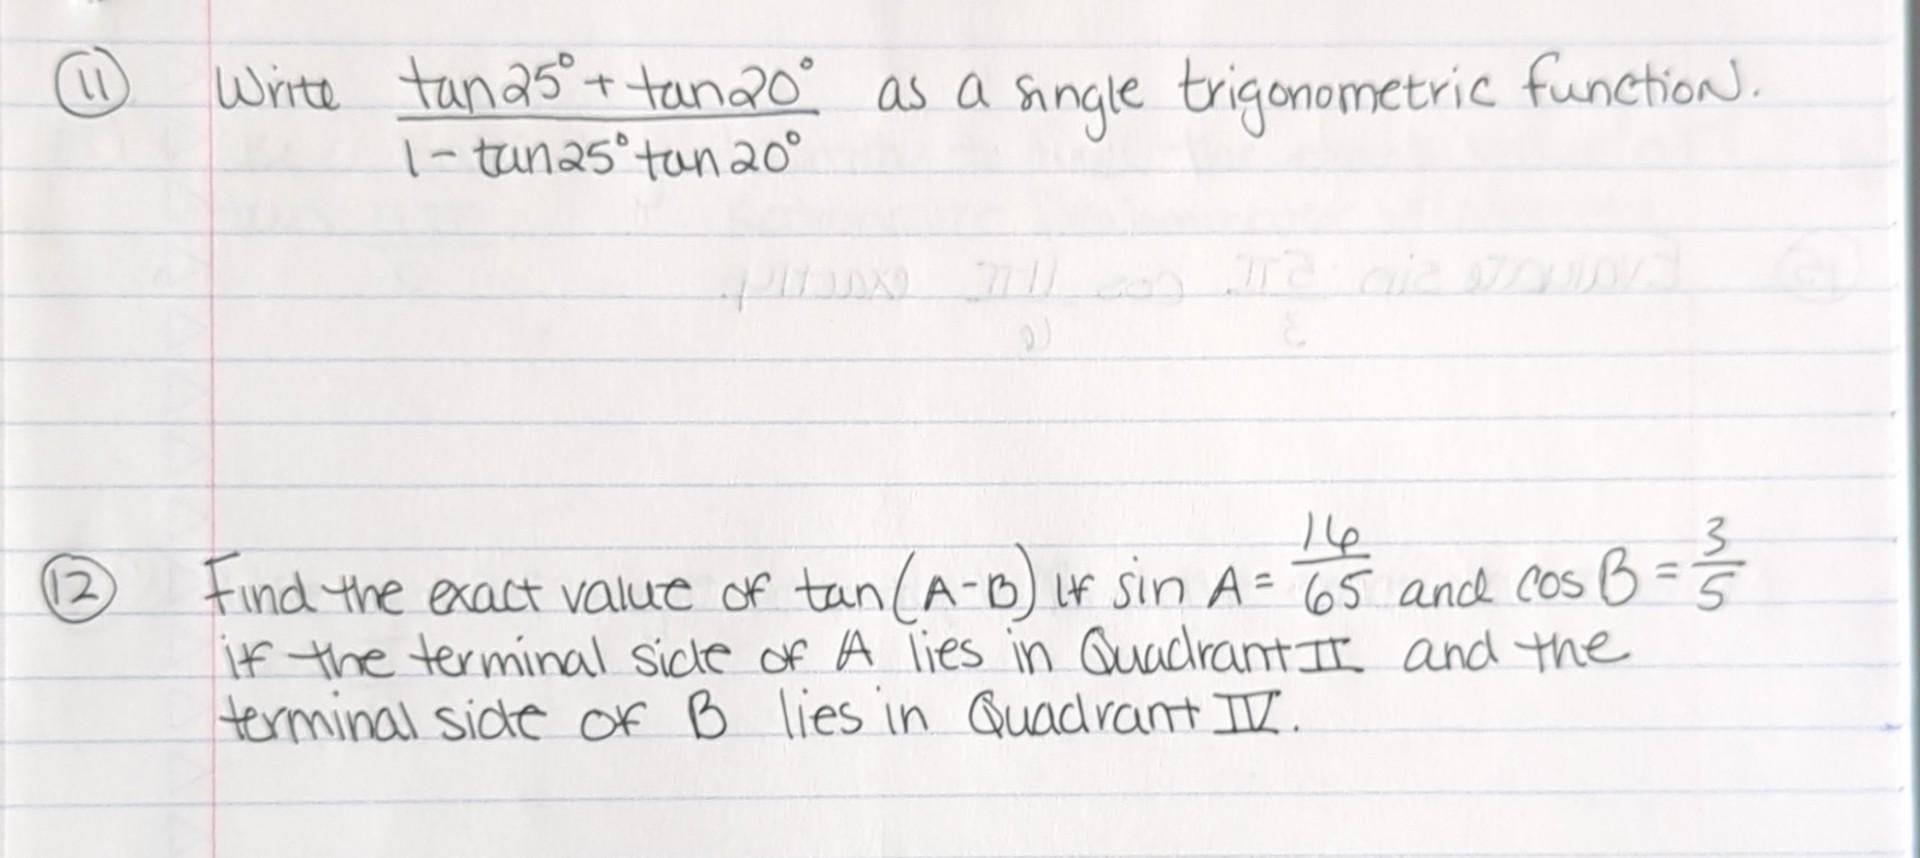 11 Write tan25° + tan20° as a single trigonometric function.
1 - tan25° tan20°
12 Find the exact value of tan(A-B) if sin A = 16/65 and cos B = 3/5
if the terminal side of A lies in Quadrant II and the
terminal side of B lies in Quadrant IV.